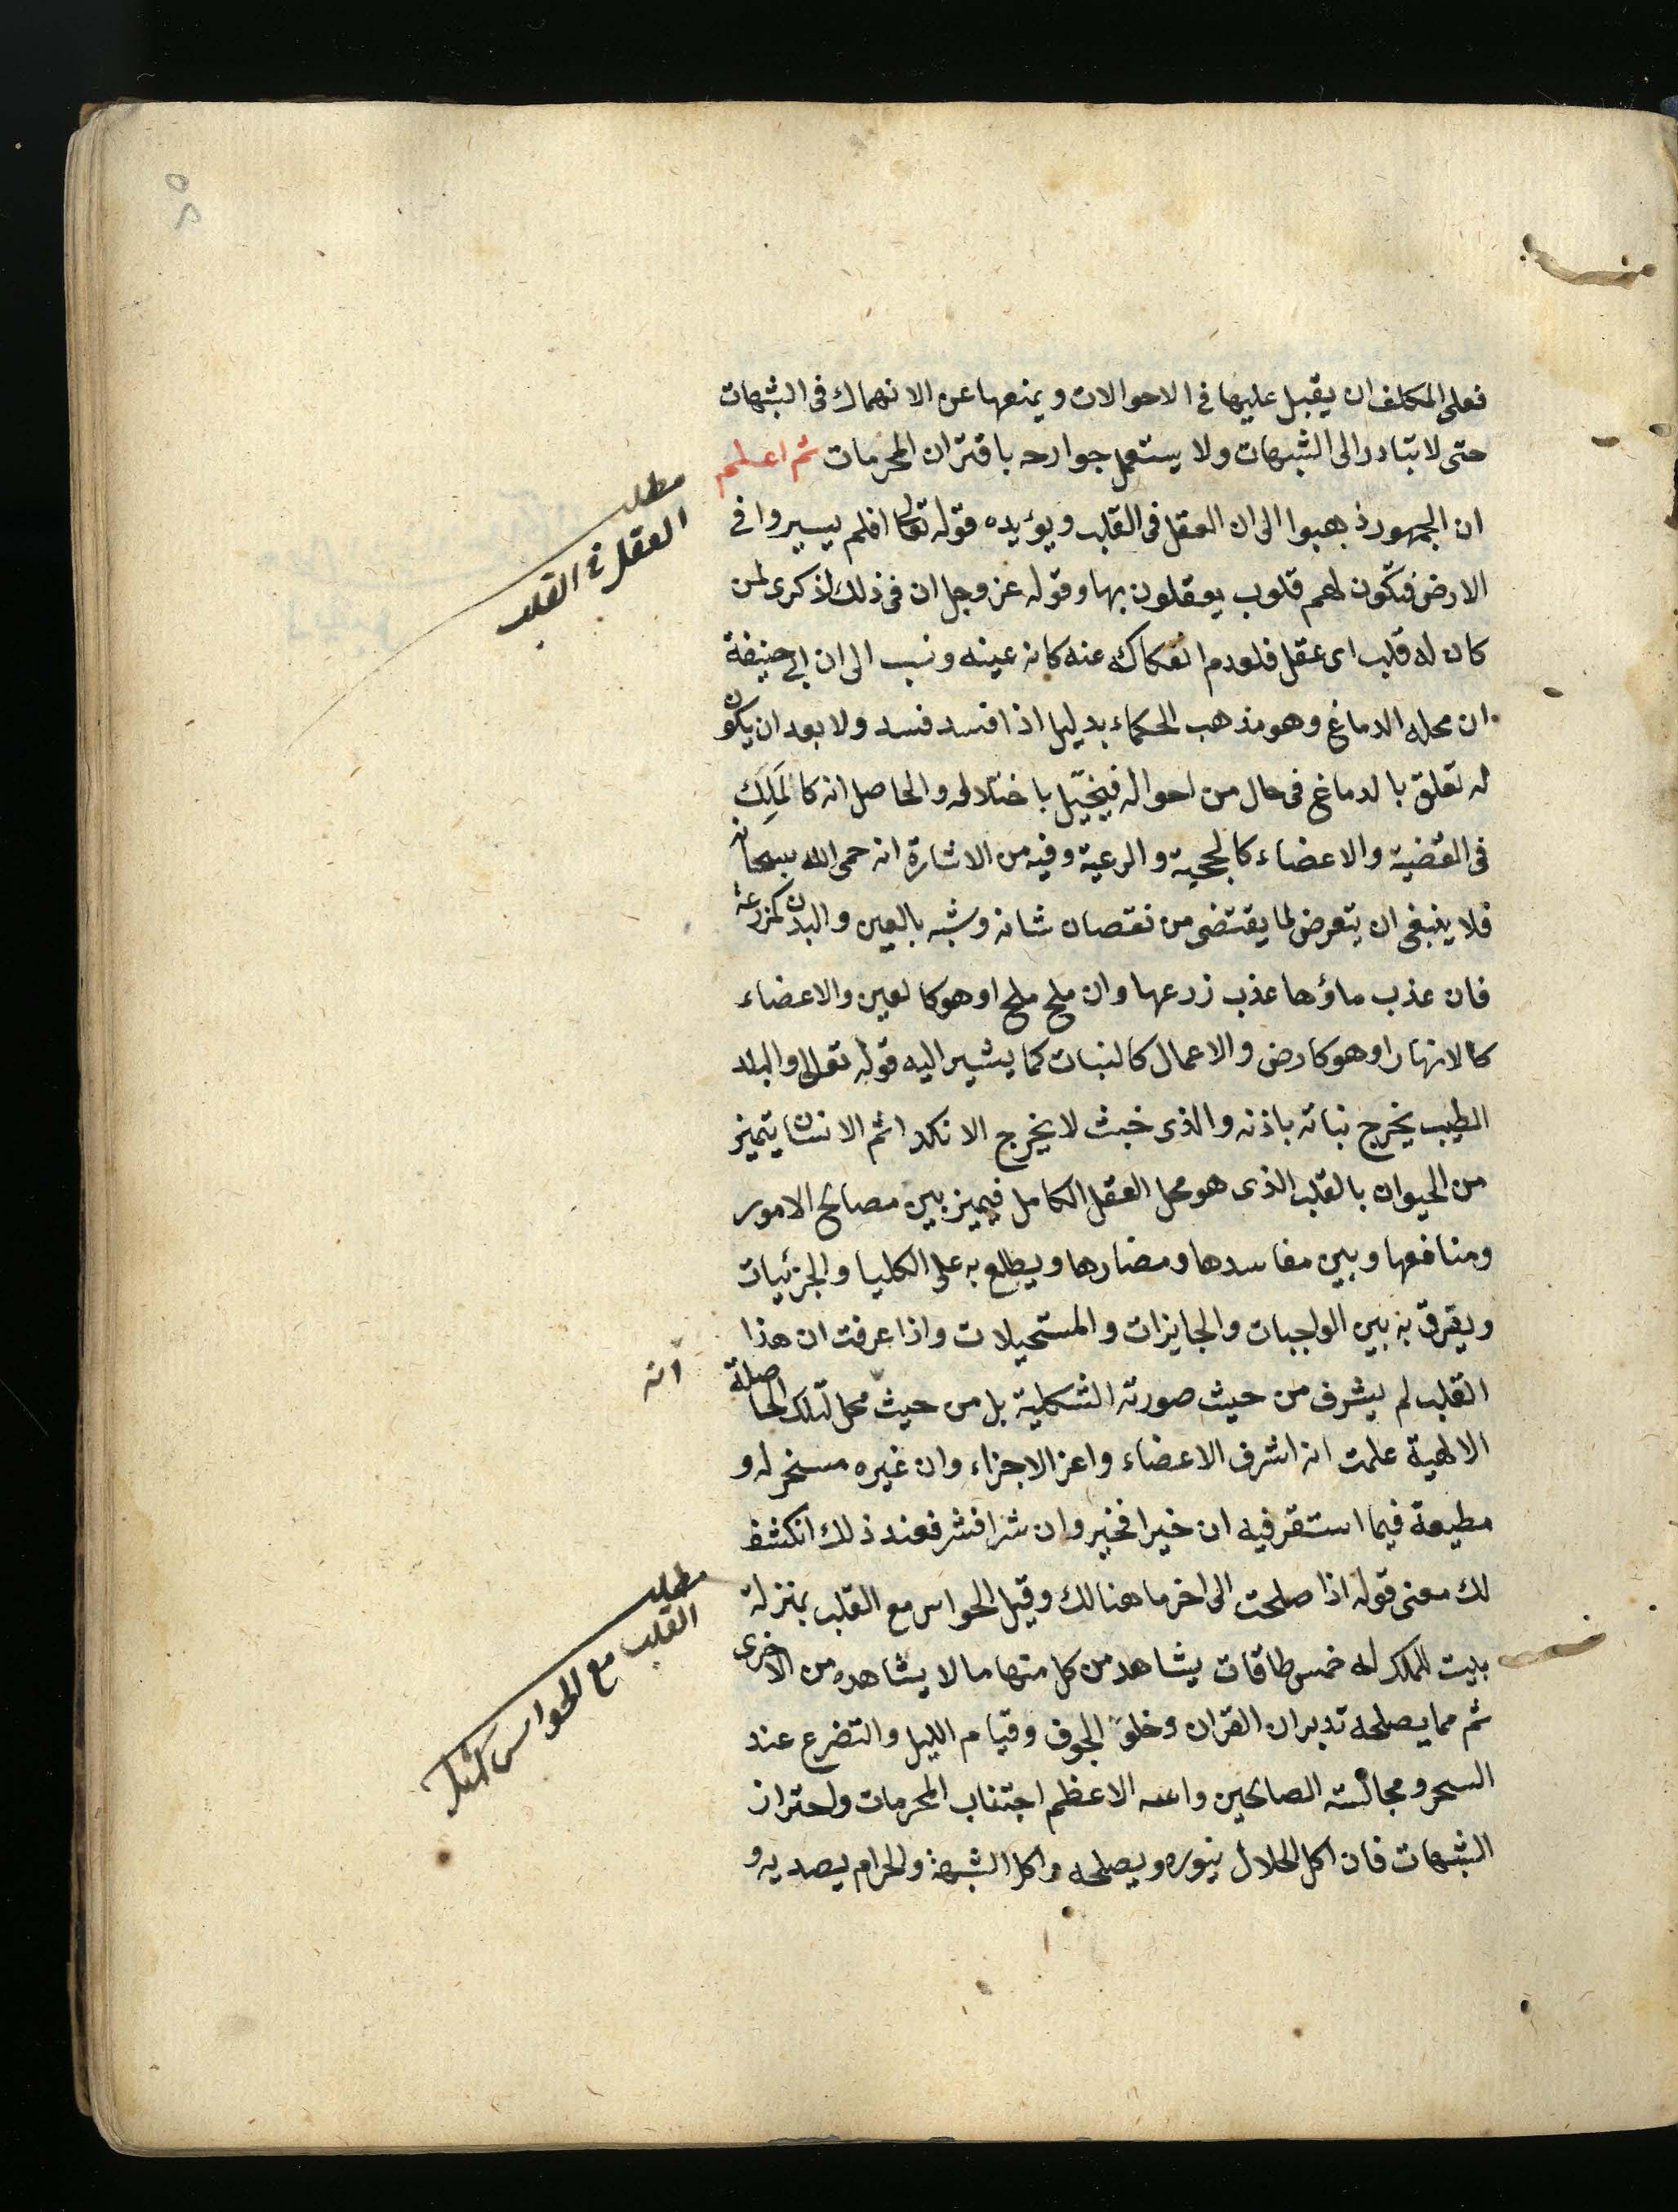 فعلى المكلف ان يقبل عليها فى الاحوالات ويمنعها عن الانهماك فى الشبهات
حتى لا تبادر الى الشبهات ولا يستعمل جوارحه باقتران المحرمات ثم اعلم
ان الجمهور ذهبوا الى ان العقل فى القلب ويؤيده قوله تعالى افلم يسيروا فى
الارض فتكون لهم قلوب يعقلون بها وقوله عز وجل ان فى ذلك لذكرى لمن
كان له قلب اى عقل فلعدم انفكاكه عنه كانه عينه ونسب الى ان ابى حنيفة
ان محله الدماغ وهو مذهب الحكماء بدليل اذا فسد فسد ولا بعد ان يكون
له تعلق بالدماغ فى حال من احواله فيختل باختلاله والحاصل انه كالملك
فى القضية والاعضاء كالجحية والرعية وفيه من الاشارة انه حمى الله سبحانه
فلا ينبغى ان يتعرض لما يقتضى من نقصان شانه وشبه بالعين والبدن كمزرعة
فان عذب ماؤها عذب زرعها وان ملح ملح او هو كالعين والاعضاء
كالانهار او هو كارض والاعمال كالنبات كما يشير اليه قوله تعالى والبلد
الطيب يخرج نباته باذنه والذى خبث لا يخرج الا نكدا ثم الانسان يتميز
من الحيوان بالقلب الذى هو محل العقل الكامل فيميز بين مصالح الامور
ومنافعها وبين مفاسدها ومضارها ويطلع به على الكليا والجزئيات
ويفرق به بين الواجبات والجايزات والمستحيلات واذا عرفت ان هذا
القلب لم يشرف من حيث صورته الشكلية بل من حيث محل لتلك الحاصلة
الالهية علمت انه اشرف الاعضاء واعز الاجزاء وان غيره مسخر له و
مطيعة فيما استقر فيه ان خيرا فخير وان شرا فشر فعند ذلك انكشف
لك معنى قوله اذا صلحت الى اخر ما هنالك وقيل الحواس مع القلب بمنزلة
بيت للملك له خمس طاقات يشاهد من كل منها ما لا يشاهده من الاخرى
ثم مما يصلحه تدبر ان القران وخلو الجوف وقيام الليل والتضرع عند
السحر ومجالسته الصالحين واسه الاعظم اجتناب المحرمات واحتراز
الشبهات فان اكل الحلال ينوره ويصلحه واكل الشبهة والحرام يصديه و
مطلب
العقل فى القلب
انه
مطلب
القلب مع الحواس